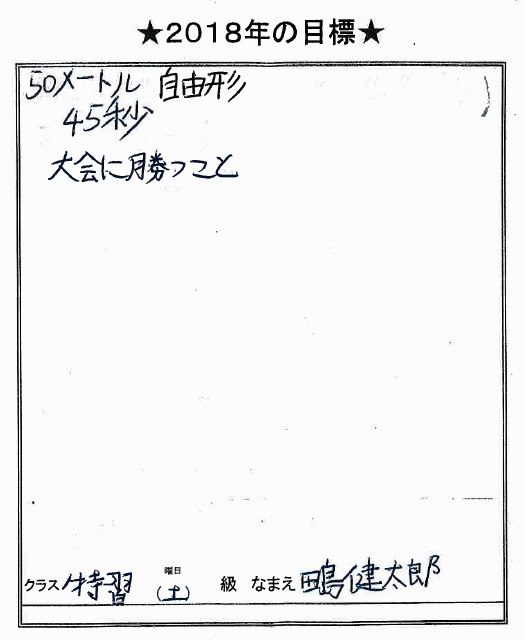 ★2018年の目標★
50メートル 自由形
45秒
大会に勝つこと
クラス 特習 曜日 (土) 級 なまえ 田嶋健太郎